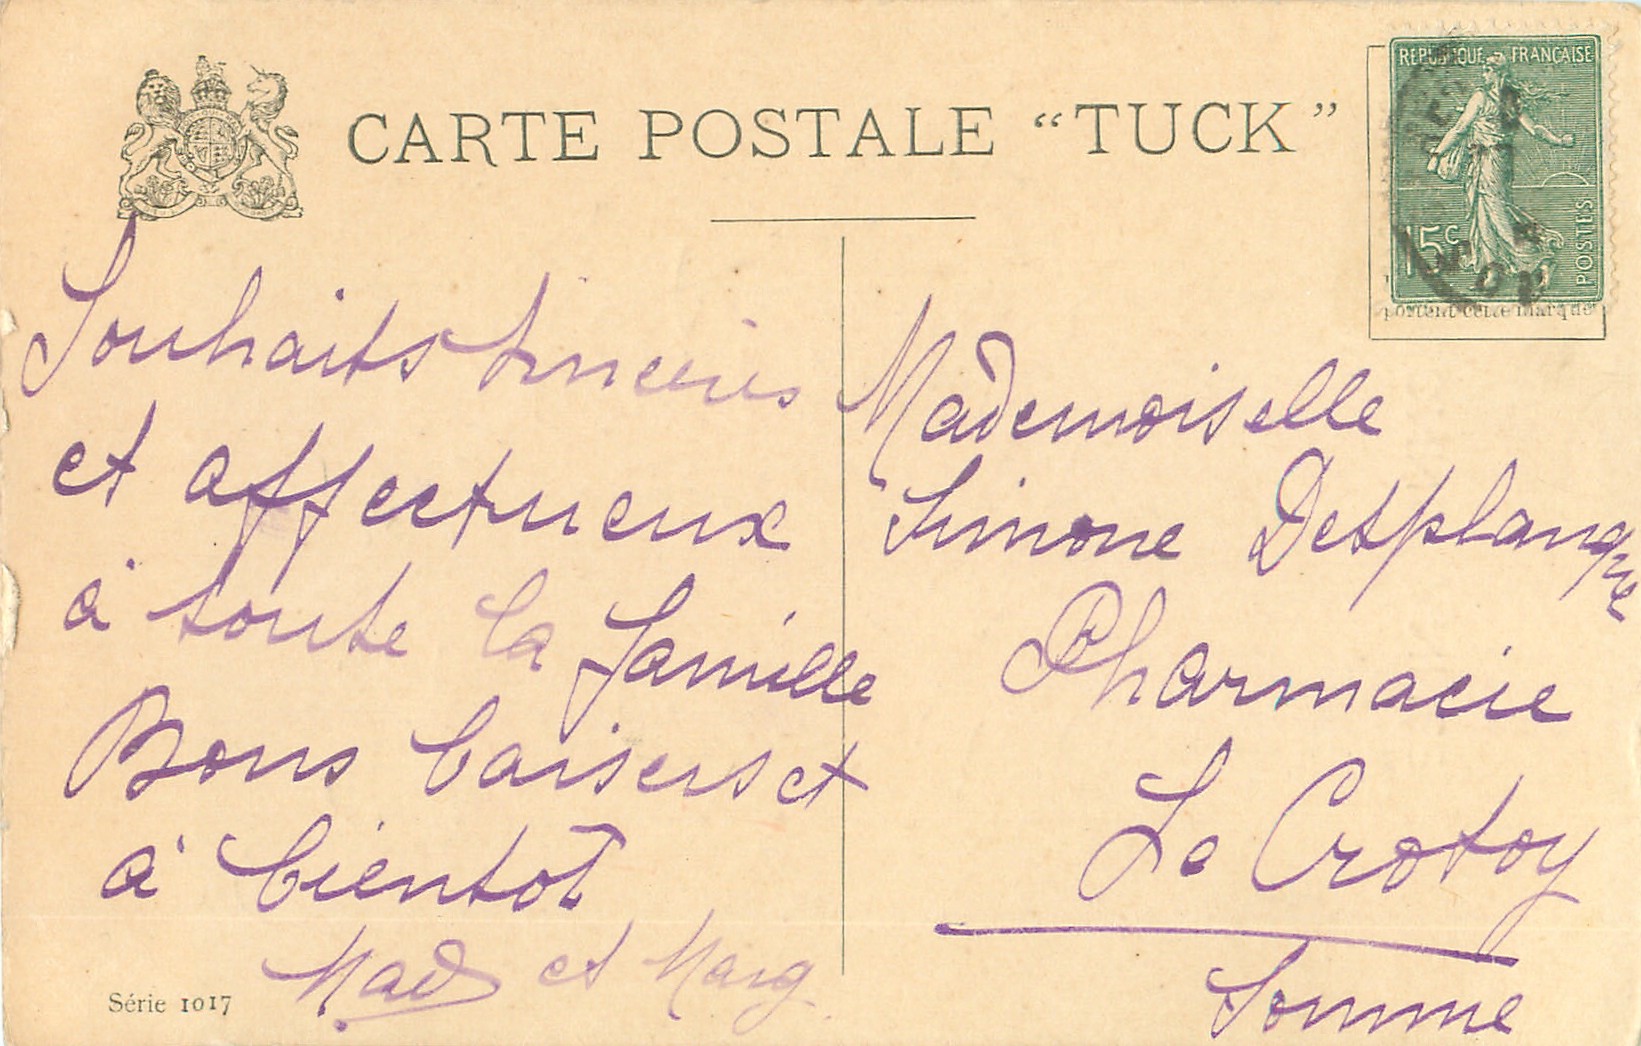 CARTE POSTALE “TUCK”
REPUBLIQUE FRANÇAISE
15c
POSTES
portent cette marque
Souhaits sincères
et affectueux
à toute la famille
Bons baisers et
à bientôt
Mad et Marg.
Série 1017
Mademoiselle
Simone Desplanque
Pharmacie
Le Crotoy
Somme